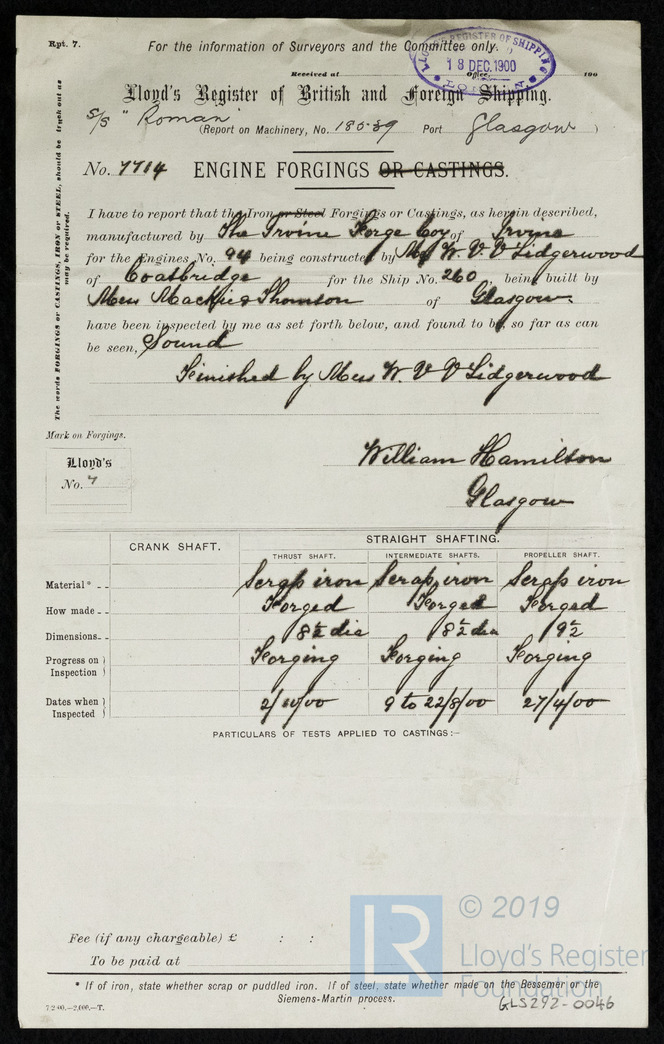 Rpt. 7.
For the information of Surveyors and the Committee only.
LLOYD'S REGISTER OF SHIPPING
18 DEC. 1900
Received at Office, 190
Lloyd's Register of British and Foreign Shipping.
S/S "Roman"
(Report on Machinery, No. 18539 Port Glasgow)
No. 7714 ENGINE FORGINGS OR CASTINGS.
The words FORGINGS or CASTINGS, IRON or STEEL, should be struck out as
may be required.
I have to report that the Iron or Steel Forgings or Castings, as herein described,
manufactured by The Irvine Forge Coy of Irvine
for the Engines No. 94 being constructed by W. V. V Lidgerwood
of Coatbridge for the Ship No. 260 being built by
Mess Mackie & Thomson of Glasgow.
have been inspected by me as set forth below, and found to be, so far as can
be seen, Sound
Finished by Mess W. V V Lidgerwood
Mark on Forgings.
Lloyd's
No. 7
William Hamilton
Glasgow
CRANK SHAFT. STRAIGHT SHAFTING.
THRUST SHAFT. INTERMEDIATE SHAFTS. PROPELLER SHAFT.
Material* - - Scrap iron Scrap iron Scrap iron
How made - - Forged Forged Forged
Dimensions - - 8½ dia 8½ dia 9½
Progress on Inspection Forging Forging Forging
Dates when Inspected 2/10/00 9 to 22/8/00 27/4/00
PARTICULARS OF TESTS APPLIED TO CASTINGS:—
Fee (if any chargeable) £ : :
To be paid at
* If of iron, state whether scrap or puddled iron. If of steel, state whether made on the Bessemer or the
Siemens-Martin process.
7.2.00.—2,000.—T.
LR
© 2019
Lloyd's Register
Foundation
GLS292-0046